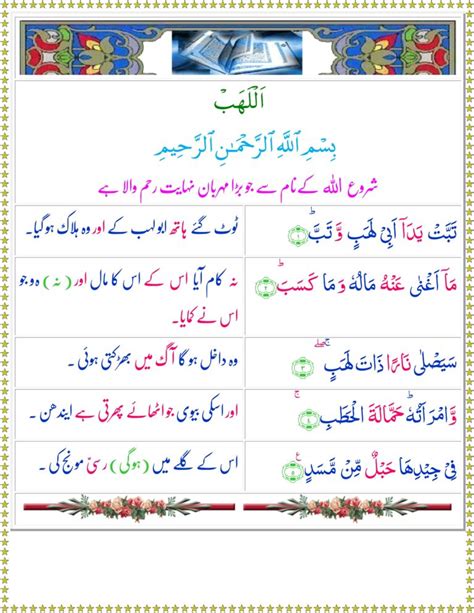 اَللَّهَبْ
بِسْمِ ٱللَّهِ ٱلرَّحْمَـٰنِ ٱلرَّحِيمِ
شروع اللہ کے نام سے جو بڑا مہربان نہایت رحم والا ہے
تَبَّتْ يَدَآ اَبِىْ لَهَبٍ وَّتَبَّؕ ﴿۱﴾
ٹوٹ گئے ہاتھ ابو لہب کے اور وہ ہلاک ہوگیا۔
مَاۤ اَغْنٰى عَنْهُ مَالُهٗ وَمَا كَسَبَؕ ﴿۲﴾
نہ کام آیا اس کے اس کا مال اور (نہ) وہ جو
اس نے کمایا۔
سَيَصْلٰى نَارًا ذَاتَ لَهَبٍ ۖۚ ﴿۳﴾
وہ داخل ہو گا آگ میں بھڑکتی ہوئی ۔
وَّامْرَاَتُهٗؕ حَمَّالَةَ الْحَطَبِۚ ﴿۴﴾
اور اسکی بیوی جو اٹھائے پھرتی ہے ایندھن ۔
فِىْ جِيْدِهَا حَبْلٌ مِّنْ مَّسَدٍ ﴿۵﴾
اس کے گلے میں (ہوگی) رسی مونج کی ۔